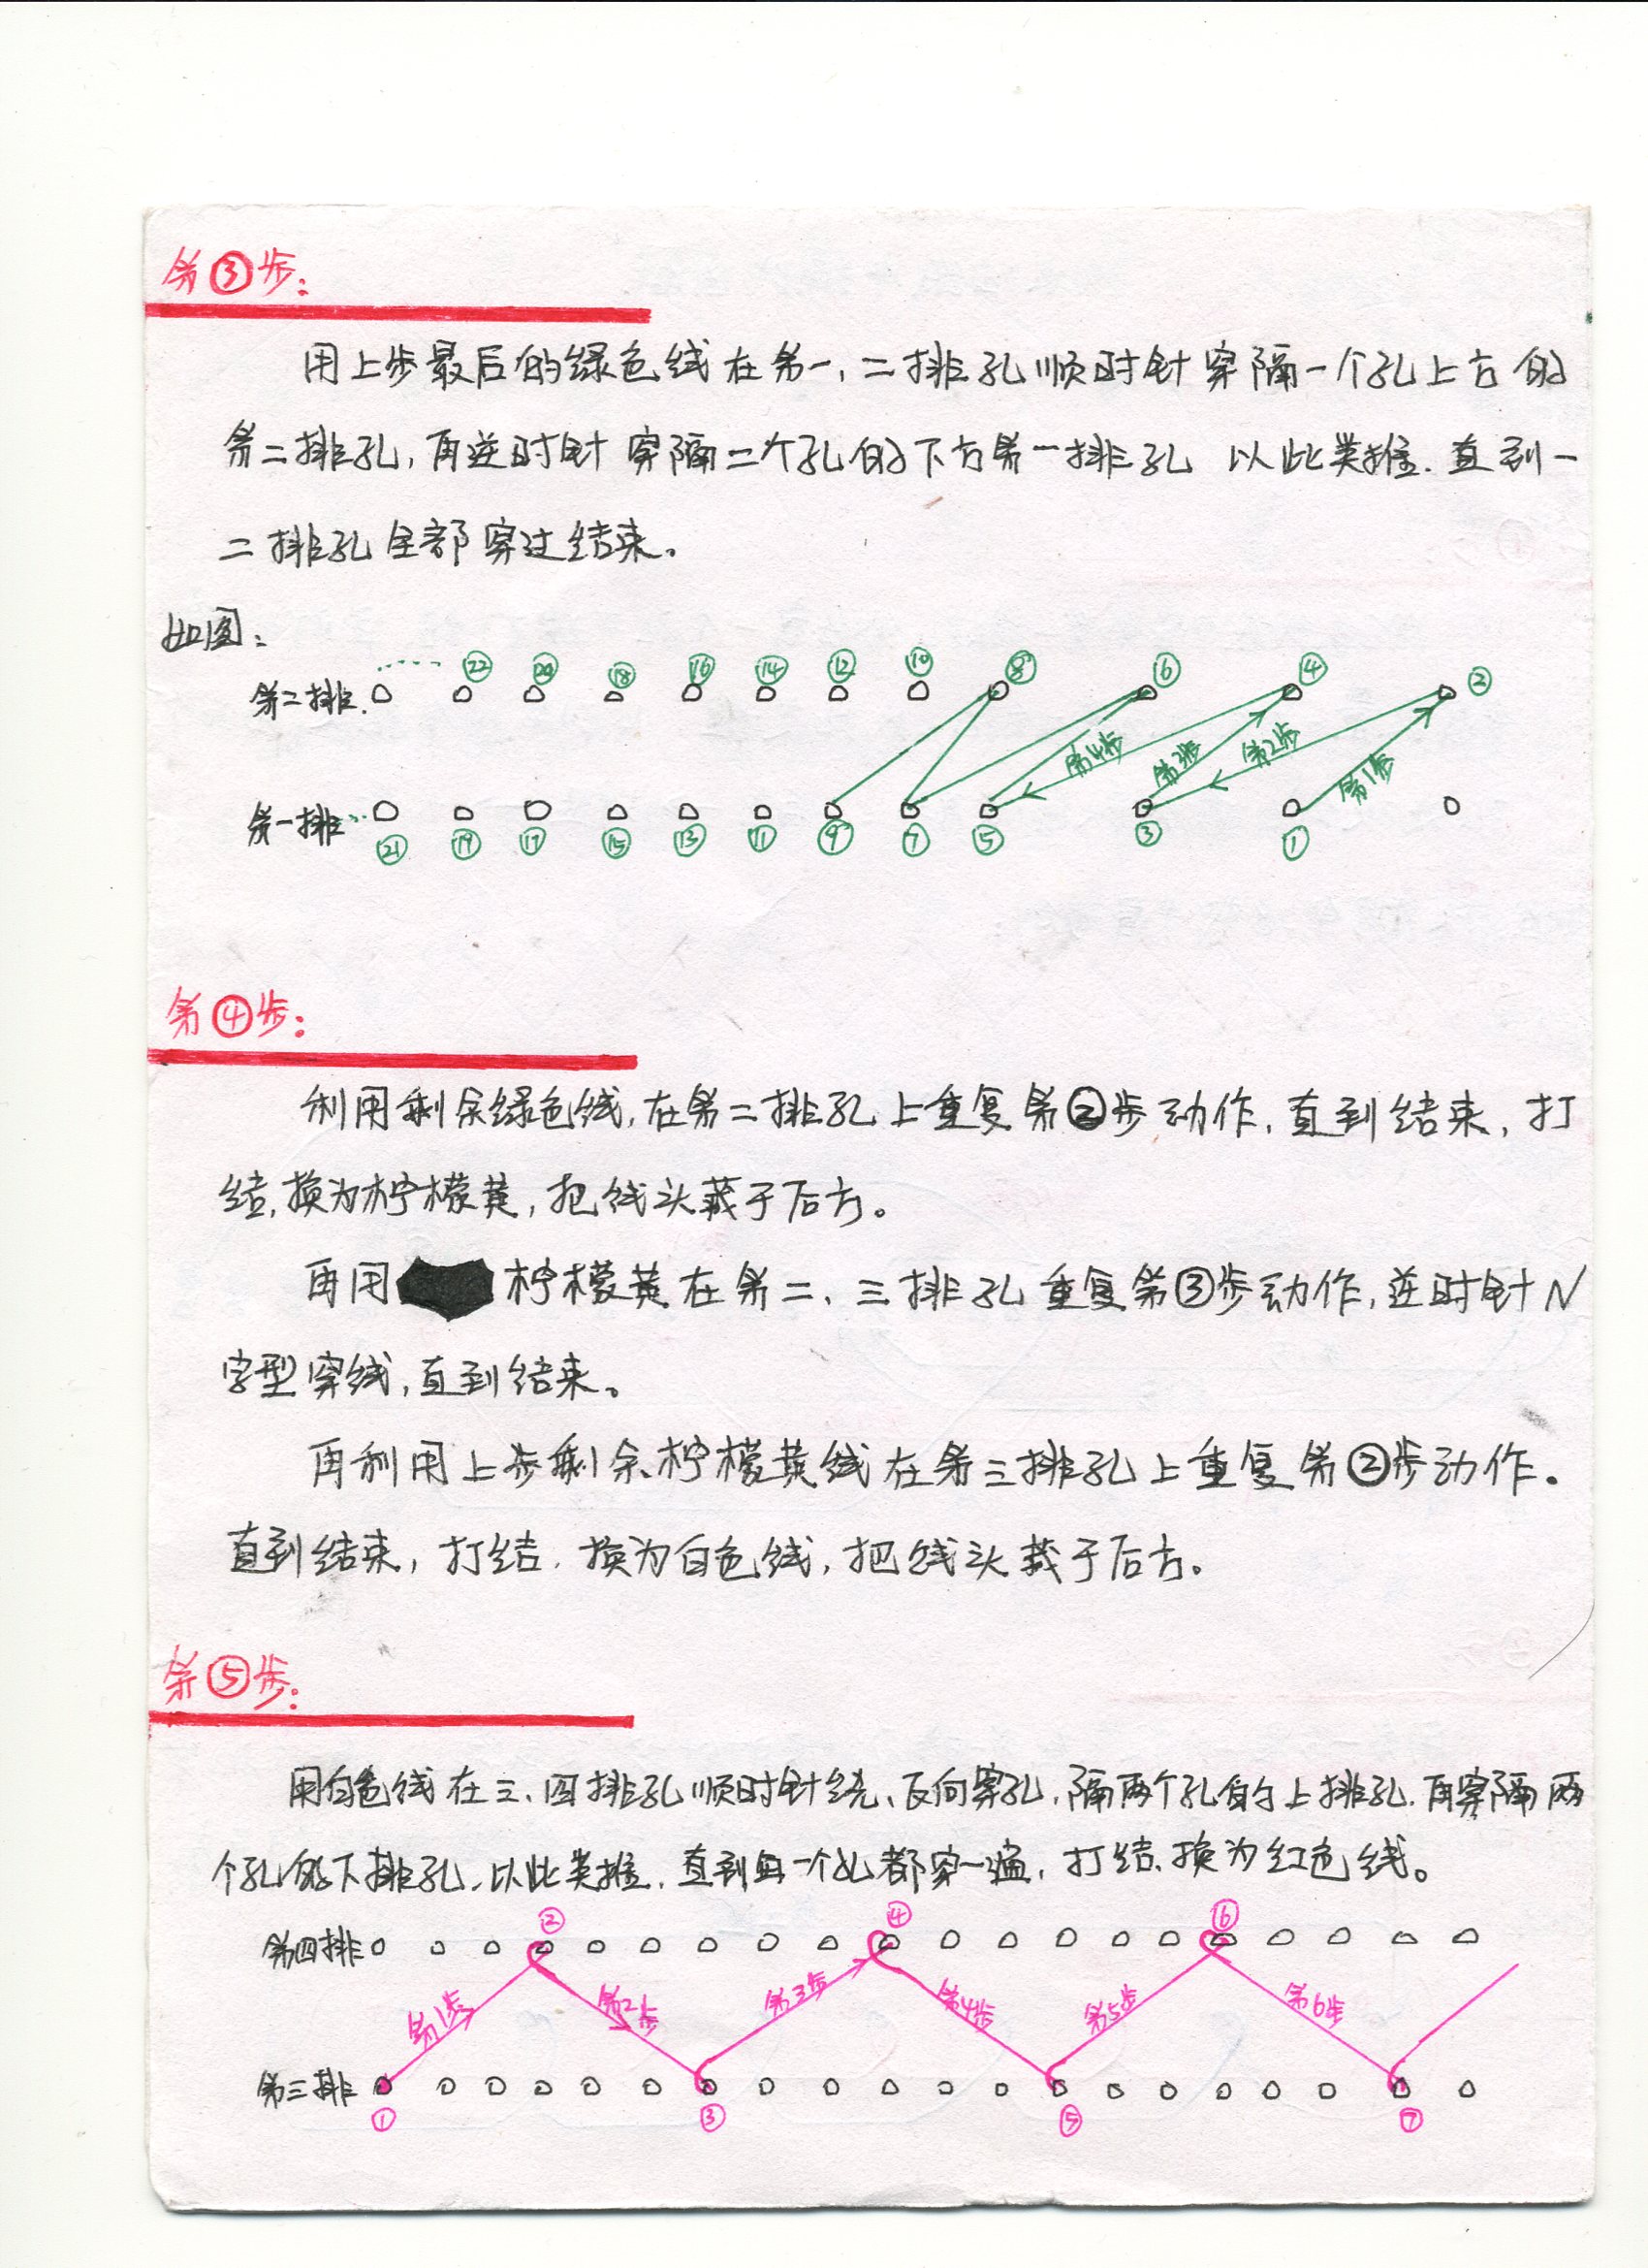 第③步:
用上步最后的绿色线在第一、二排孔顺时针穿隔一个孔上方的
第二排孔,再逆时针穿隔二个孔的下方第一排孔 以此类推.直到一
二排孔全部穿过结束。
如图:
㉒ ⑳ ⑱ ⑯ ⑭ ⑫ ⑩ ⑧ ⑥ ④ ②
第二排.
第4步 第3步 第2步 第1步
第一排
㉑ ⑲ ⑰ ⑮ ⑬ ⑪ ⑨ ⑦ ⑤ ③ ①
第④步:
利用剩余绿色线,在第二排孔上重复第②步动作,直到结束,打
结,换为柠檬黄,把线头藏于后方。
再用柠檬黄在第二、三排孔重复第③步动作,逆时针N
字型穿线,直到结束。
再利用上步剩余柠檬黄线在第三排孔上重复第②步动作。
直到结束,打结.换为白色线,把线头藏于后方。
第⑤步:
用白色线在三、四排孔顺时针绕、反向穿孔,隔两个孔的上排孔.再穿隔两
个孔的下排孔,以此类推,直到每一个孔都穿一遍,打结、换为红色线。
② ④ ⑥
第四排
第1步 第2步 第3步 第4步 第5步 第6步
第三排
① ③ ⑤ ⑦